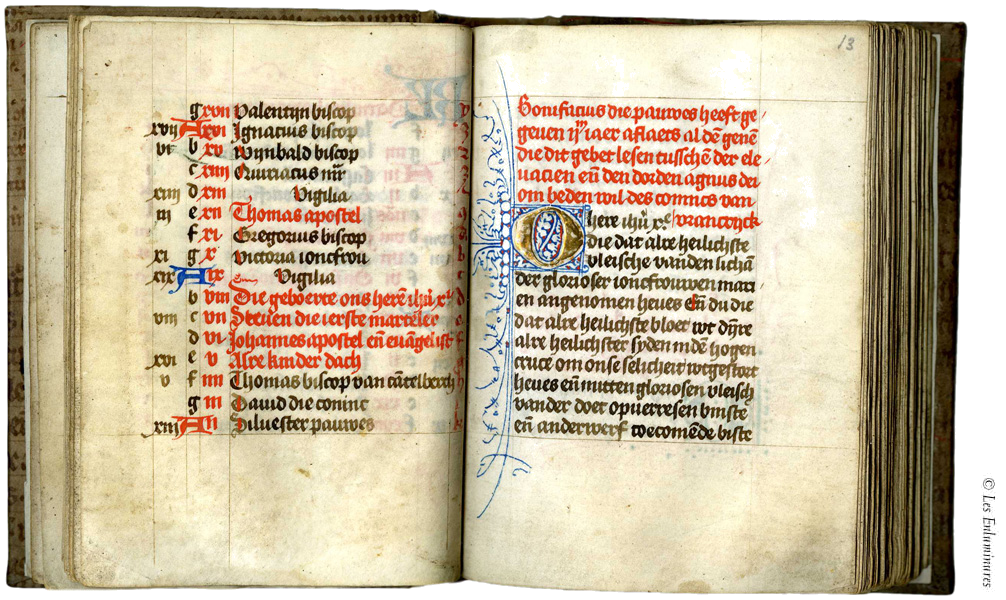 g xvii Valentijn biscop
xvij A xvi Ignacius biscop
vi b xv Wijnbald biscop
c xiiij
xiiij d xiii Vigilia
iij e xii Thomas apostel
f xi Gregorius biscop
xi g x Victoria ioncfrou
xix A ix Vigilia
b viii Die geboerte ons herē ihū xr̄
viij c vii Steuen die ierste marteler
d vi Johannes apostel eñ euāgelist
xvi e v Alre kinder dach
v f iiii Thomas biscop van cātelberch
g iii Dauid die coninc
xiij A ii Siluester pauwes
13
Bonifacius die pauwes heeft ge-
geuen ijm iaer aflaers al dē genē
die dit gebet lesen tusschē der ele-
uacien eñ den dorden agnus dei
om beden wil des conincs van
vrancryck
O here ihū xr̄
die dat alre heilichste
vleische vanden lichā
der glorioser ioncfrouwen mari
en angenomen heues eñ du die
dat alre heilichste bloet wt dijnre
alre heilichster syden in dē hogen
cruce om onse selicheit wtgestort
heues eñ mitten gloriosen vleisch
vander doet op verresen binste
eñ anderwerf toecomēde biste
© Les Enluminures